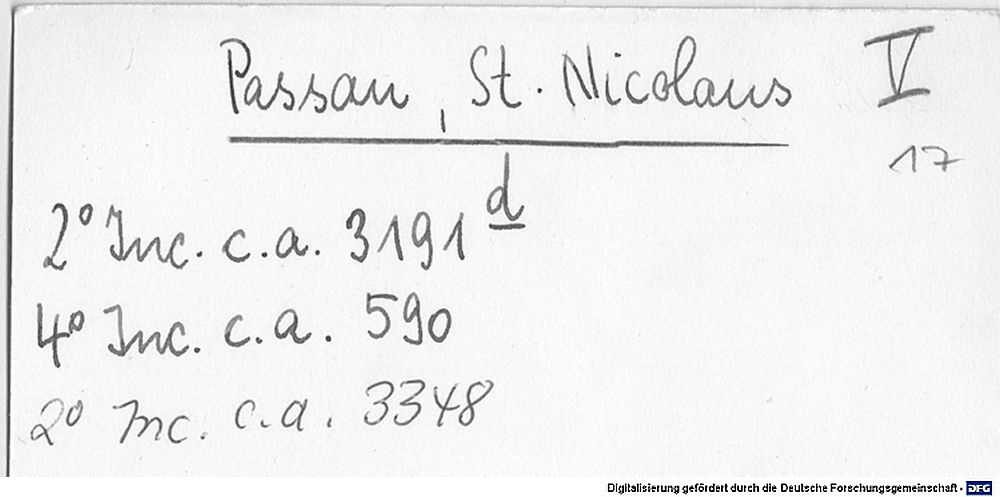 Passau, St. Nicolaus V
17
2° Inc. c.a. 3191 d
4° Inc. c.a. 590
2° Inc. c.a. 3348
Digitalisierung gefördert durch die Deutsche Forschungsgemeinschaft - DFG